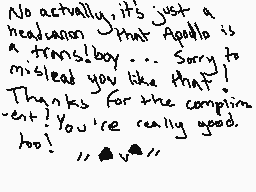 No actually, it's just a
headcanon that Apollo is
a trans! boy... Sorry to
mislead you like that!
Thanks for the complim
-ent! You're really good
too!